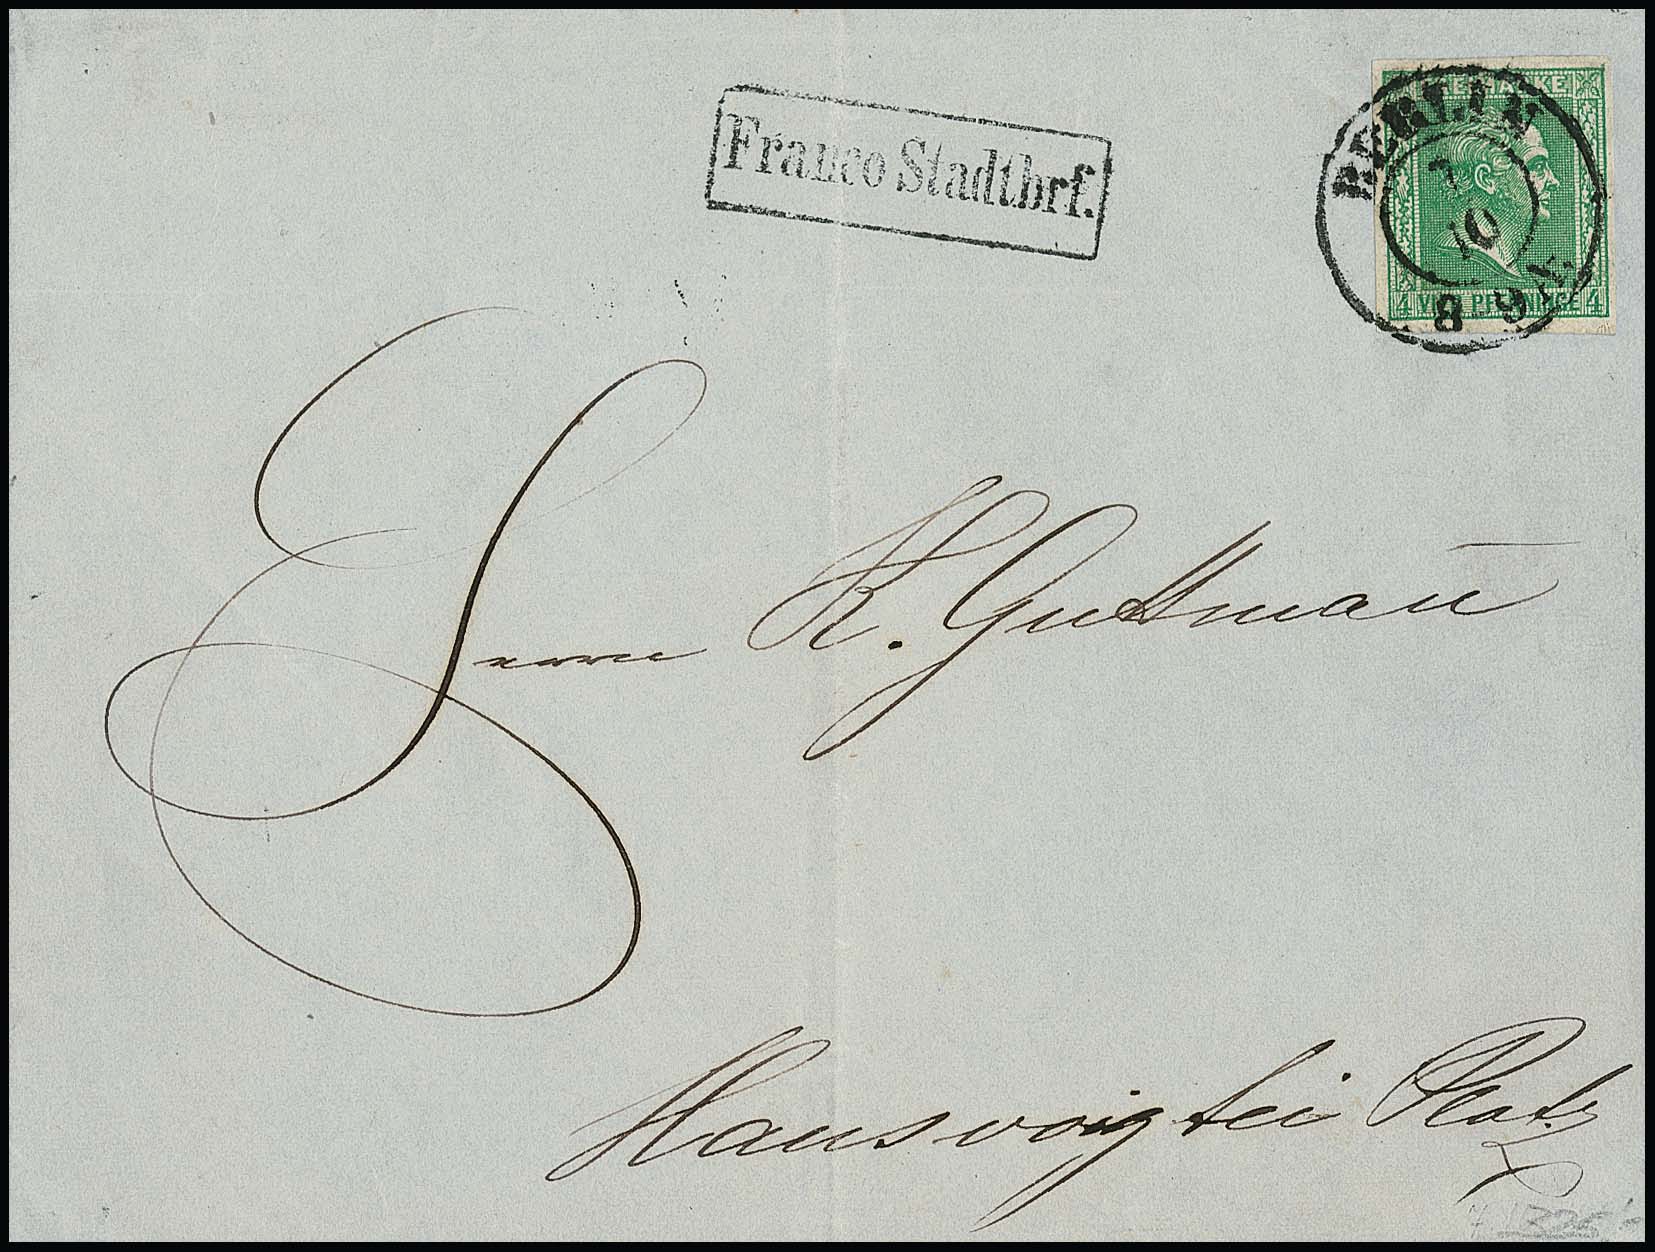 Franco Stadtbrf.
FREIMARKE
BERLIN
7
10
8 9 N.
4 VIER PFENNINGE 4
Herrn K. Guttman̄
Hausvoigtei Platz